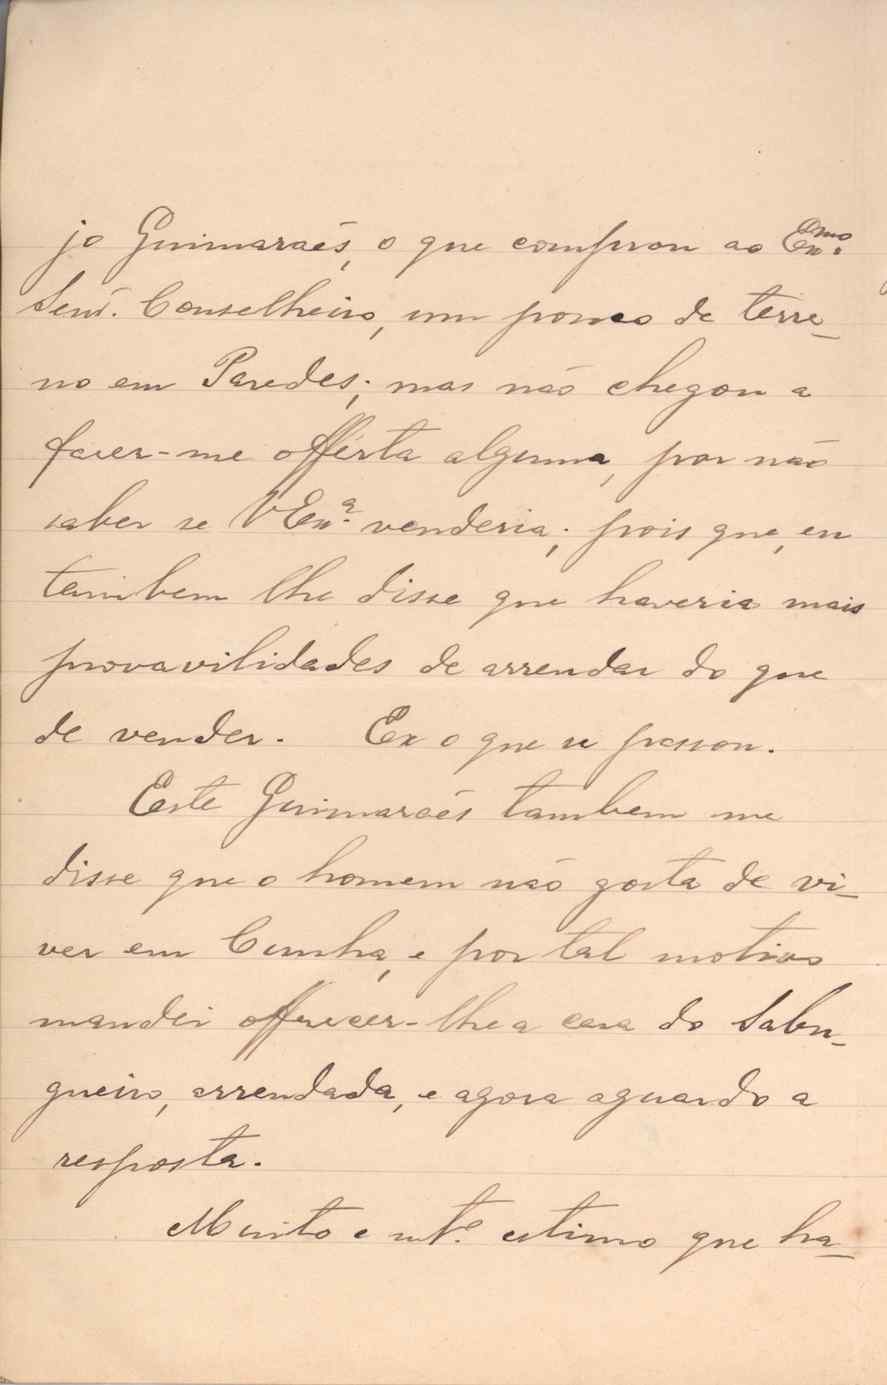 jo Guimaraẽs, o que comprou ao Exmo.
Senr. Conselheiro, um pouco de terre-
no em Paredes; mas não chegou a
fazer-me offérta alguma, por não
saber se VExa. venderia; pois que, eu
tambem lhe disse que haveria mais
provavilidades de arrendar do que
de vender. Ex o que se passou.
Este Guimaraẽs tambem me
disse que o homem não gosta de vi-
ver em Cunha, e por tal motivo
mandei offerecer-lhe a casa do Sabu-
gueiro, arrendada, e agora aguardo a
resposta.
Muito e mto. estimo que ha-